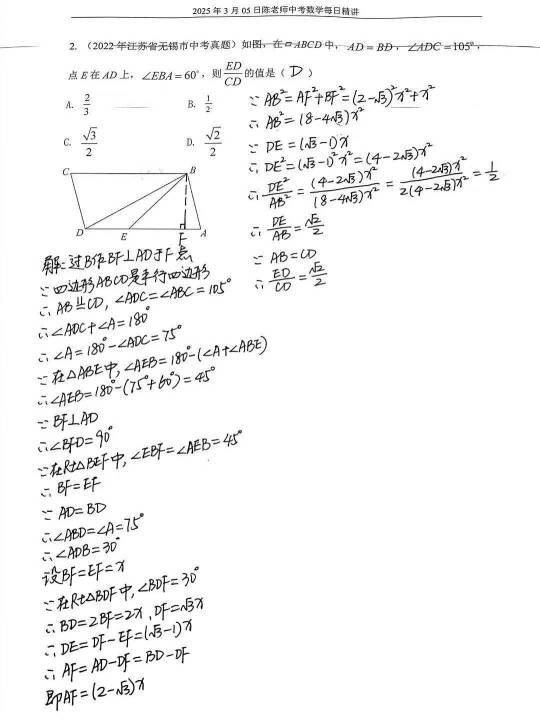 2025 年 3 月 05 日陈老师中考数学每日精讲
2. （2022 年江苏省无锡市中考真题）如图，在▱ABCD 中，AD = BD，∠ADC = 105°，
点 E 在 AD 上，∠EBA = 60°，则 ED/CD 的值是（ D ）
A. 2/3
B. 1/2
C. √3/2
D. √2/2
C
B
D
E
F
A
解：过B作BF⊥AD于F点
∵四边形ABCD是平行四边形
∴AB∥CD，∠ADC=∠ABC=105°
∴∠ADC+∠A=180°
∴∠A=180°-∠ADC=75°
∵在△ABE中，∠AEB=180°-(∠A+∠ABE)
∴∠AEB=180°-(75°+60°)=45°
∵BF⊥AD
∴∠BFD=90°
∵在Rt△BEF中，∠EBF=∠AEB=45°
∴BF=EF
∵AD=BD
∴∠ABD=∠A=75°
∴∠ADB=30°
设BF=EF=x
∵在Rt△BDF中，∠BDF=30°
∴BD=2BF=2x，DF=√3x
∴DE=DF-EF=(√3-1)x
∴AF=AD-DF=BD-DF
即AF=(2-√3)x
∵AB²=AF²+BF²=(2-√3)²x²+x²
∴AB²=(8-4√3)x²
∵DE=(√3-1)x
∴DE²=(√3-1)²x²=(4-2√3)x²
∴DE²/AB²=(4-2√3)x²/(8-4√3)x²=(4-2√3)x²/2(4-2√3)x²=1/2
∴DE/AB=√2/2
∵AB=CD
∴ED/CD=√2/2